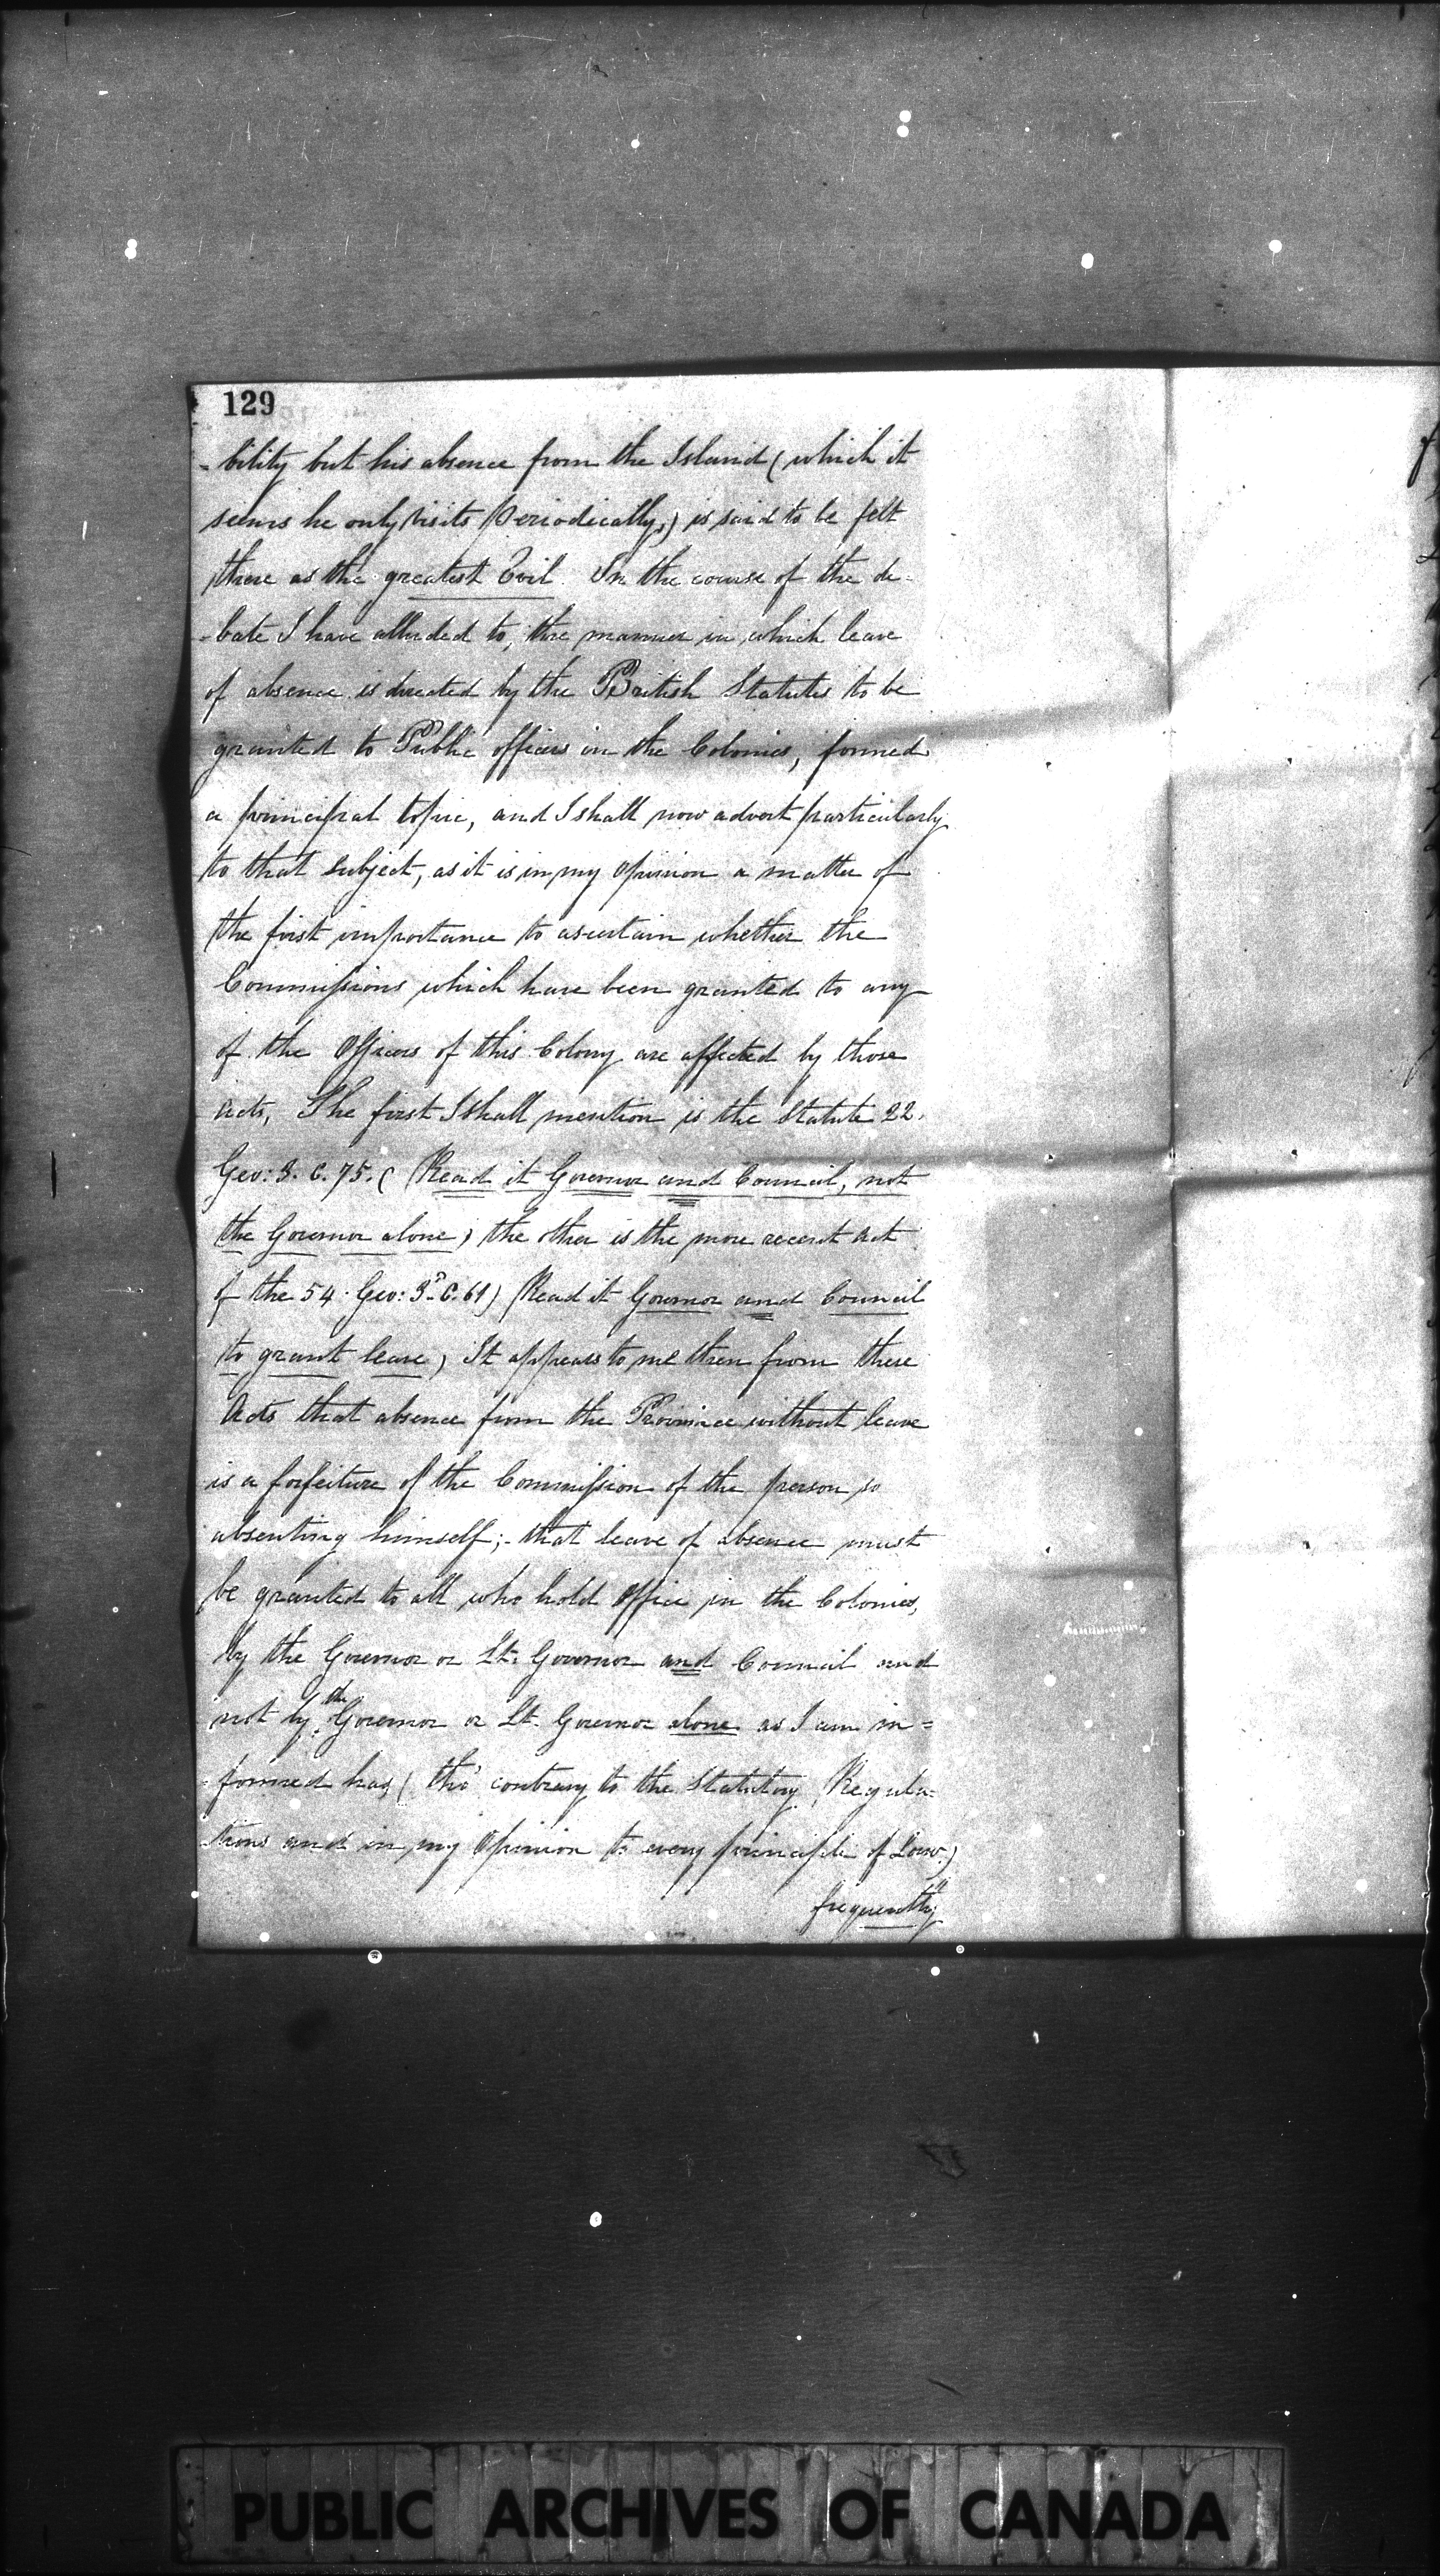 129
-bility but his absence from the Island (which it
seems he only visits periodically,) is said to be felt
there as the greatest Evil. In the course of the de-
-bate I have alluded to, the manner in which leave
of absence is directed by the British Statutes to be
granted to Public officers in the Colonies, formed
a principal topic, and I shall now advert particularly
to that subject, as it is in my opinion a matter of
the first importance to ascertain whether the
Commissions which have been granted to any
of the Officers of this Colony are affected by those
acts, The first I shall mention is the Statute 22.
Geo: 3. C. 75. ( Read it Governor and Council, not
the Governor alone) the other is the more recent act
of the 54. Geo: 3d. C. 61) (Read it Governor and Council
to grant leave) It appears to me then from these
Acts that absence from the Province without leave
is a forfeiture of the Commission of the person so
absenting himself;- that leave of absence must
be granted to all who hold Office in the Colonies,
by the Governor or Lt. Governor and Council and
not by the Governor or Lt. Governor alone as I am in=
-formed has, ( tho' contrary to the Statutory Regula-
-tions and in my Opinion to every principle of Law.)
frequently
PUBLIC ARCHIVES OF CANADA